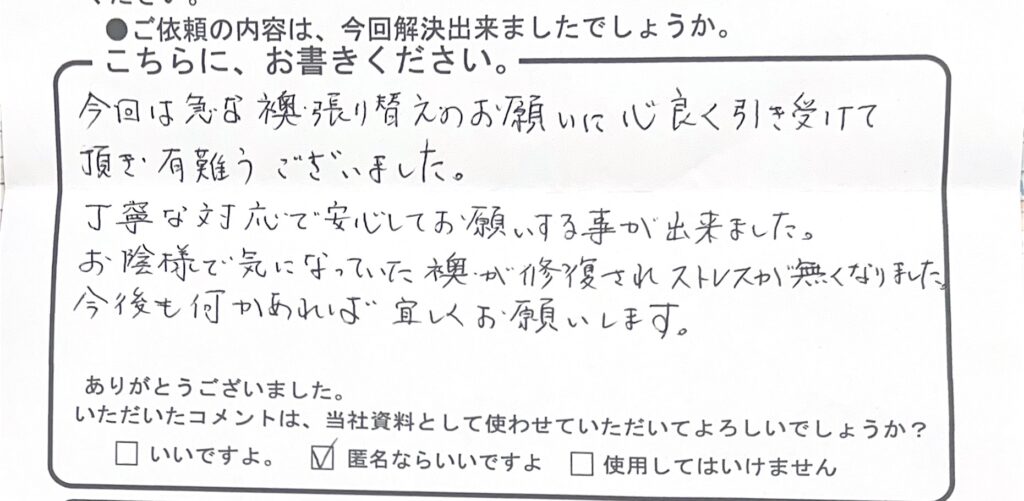 ください。
●ご依頼の内容は、今回解決出来ましたでしょうか。
こちらに、お書きください。
今回は急な襖張り替えのお願いに心良く引き受けて
頂き有難うございました。
丁寧な対応で安心してお願いする事が出来ました。
お陰様で気になっていた襖が修復されストレスが無くなりました。
今後も何かあれば宜しくお願いします。
ありがとうございました。
いただいたコメントは、当社資料として使わせていただいてよろしいでしょうか？
□ いいですよ。 ☑ 匿名ならいいですよ □ 使用してはいけません